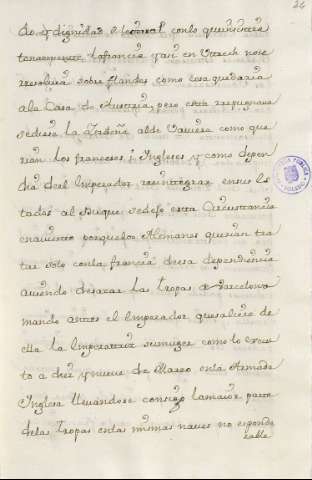 26
do, y dignidad electoral conlo quericitara
la francia y así en Utrech nose
resolvia sobre flandes como cosa quedaria
ala Casa de Austria, pero esta repugnava
sediese la Zerdeña alde Vaviera como que
rian los franceses, i Ingleses y como depen
dia del Emperador reintegrar ensus Es
tados al Duque sedejo esta Circunstancia
enavierto porquelos Alemanes querian tra
tar solo conla francia desta dependencia
aviendo desacar las tropas de Barcelona
mando antes el Emperador quesaliese de
ella la Emperatriz sumuger como lo execu
to a diez y nueve de Marzo enla Armada
Inglesa llevandose consigo lamaior parte
delas tropas enlas mismas naves no esponde
rable